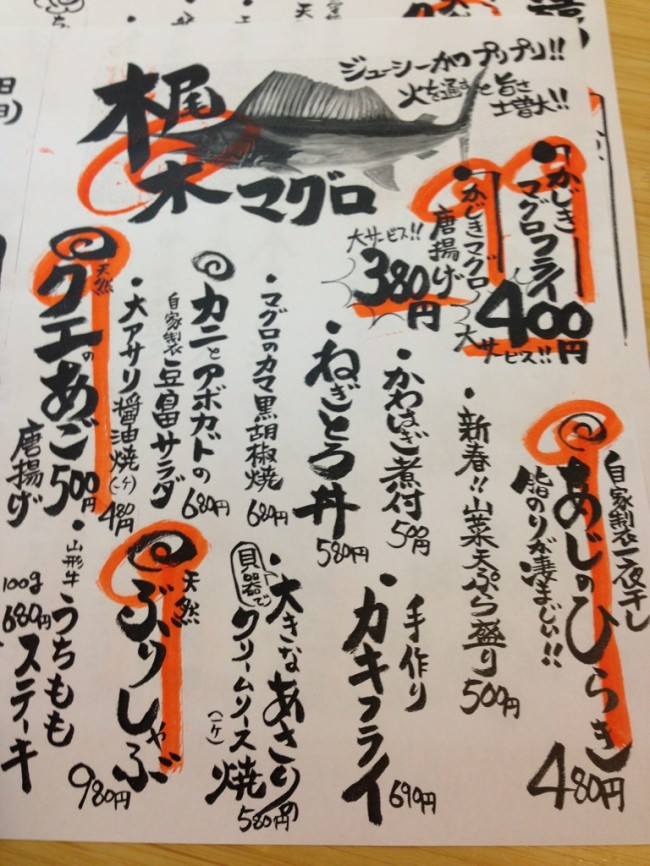 梶木マグロ
ジューシーかつプリプリ!!
火を通すと旨さ
土曽大!!
・かじき
マグロフライ
400円
大サービス!!
・かじきマグロ
唐揚げ
大サービス!!
380円
自家製一夜干し
脂のりが凄まじい!!
あじのひらき
480円
・新春!!山菜天ぷら盛り
500円
・かわはぎ煮付
500円
・ねぎとろ丼
580円
・マグロのカマ黒胡椒焼
680円
カニとアボカドの
自家製豆腐サラダ
680円
・大アサリ醤油焼(一ケ)
480円
天然
クエのあご
唐揚げ
500円
・手作り
カキフライ
690円
・大きなあさりの
貝器で
クリームソース焼
(一ケ)
580円
天然
ぶりしゃぶ
980円
・山形牛うちもも
ステーキ
100g
680円